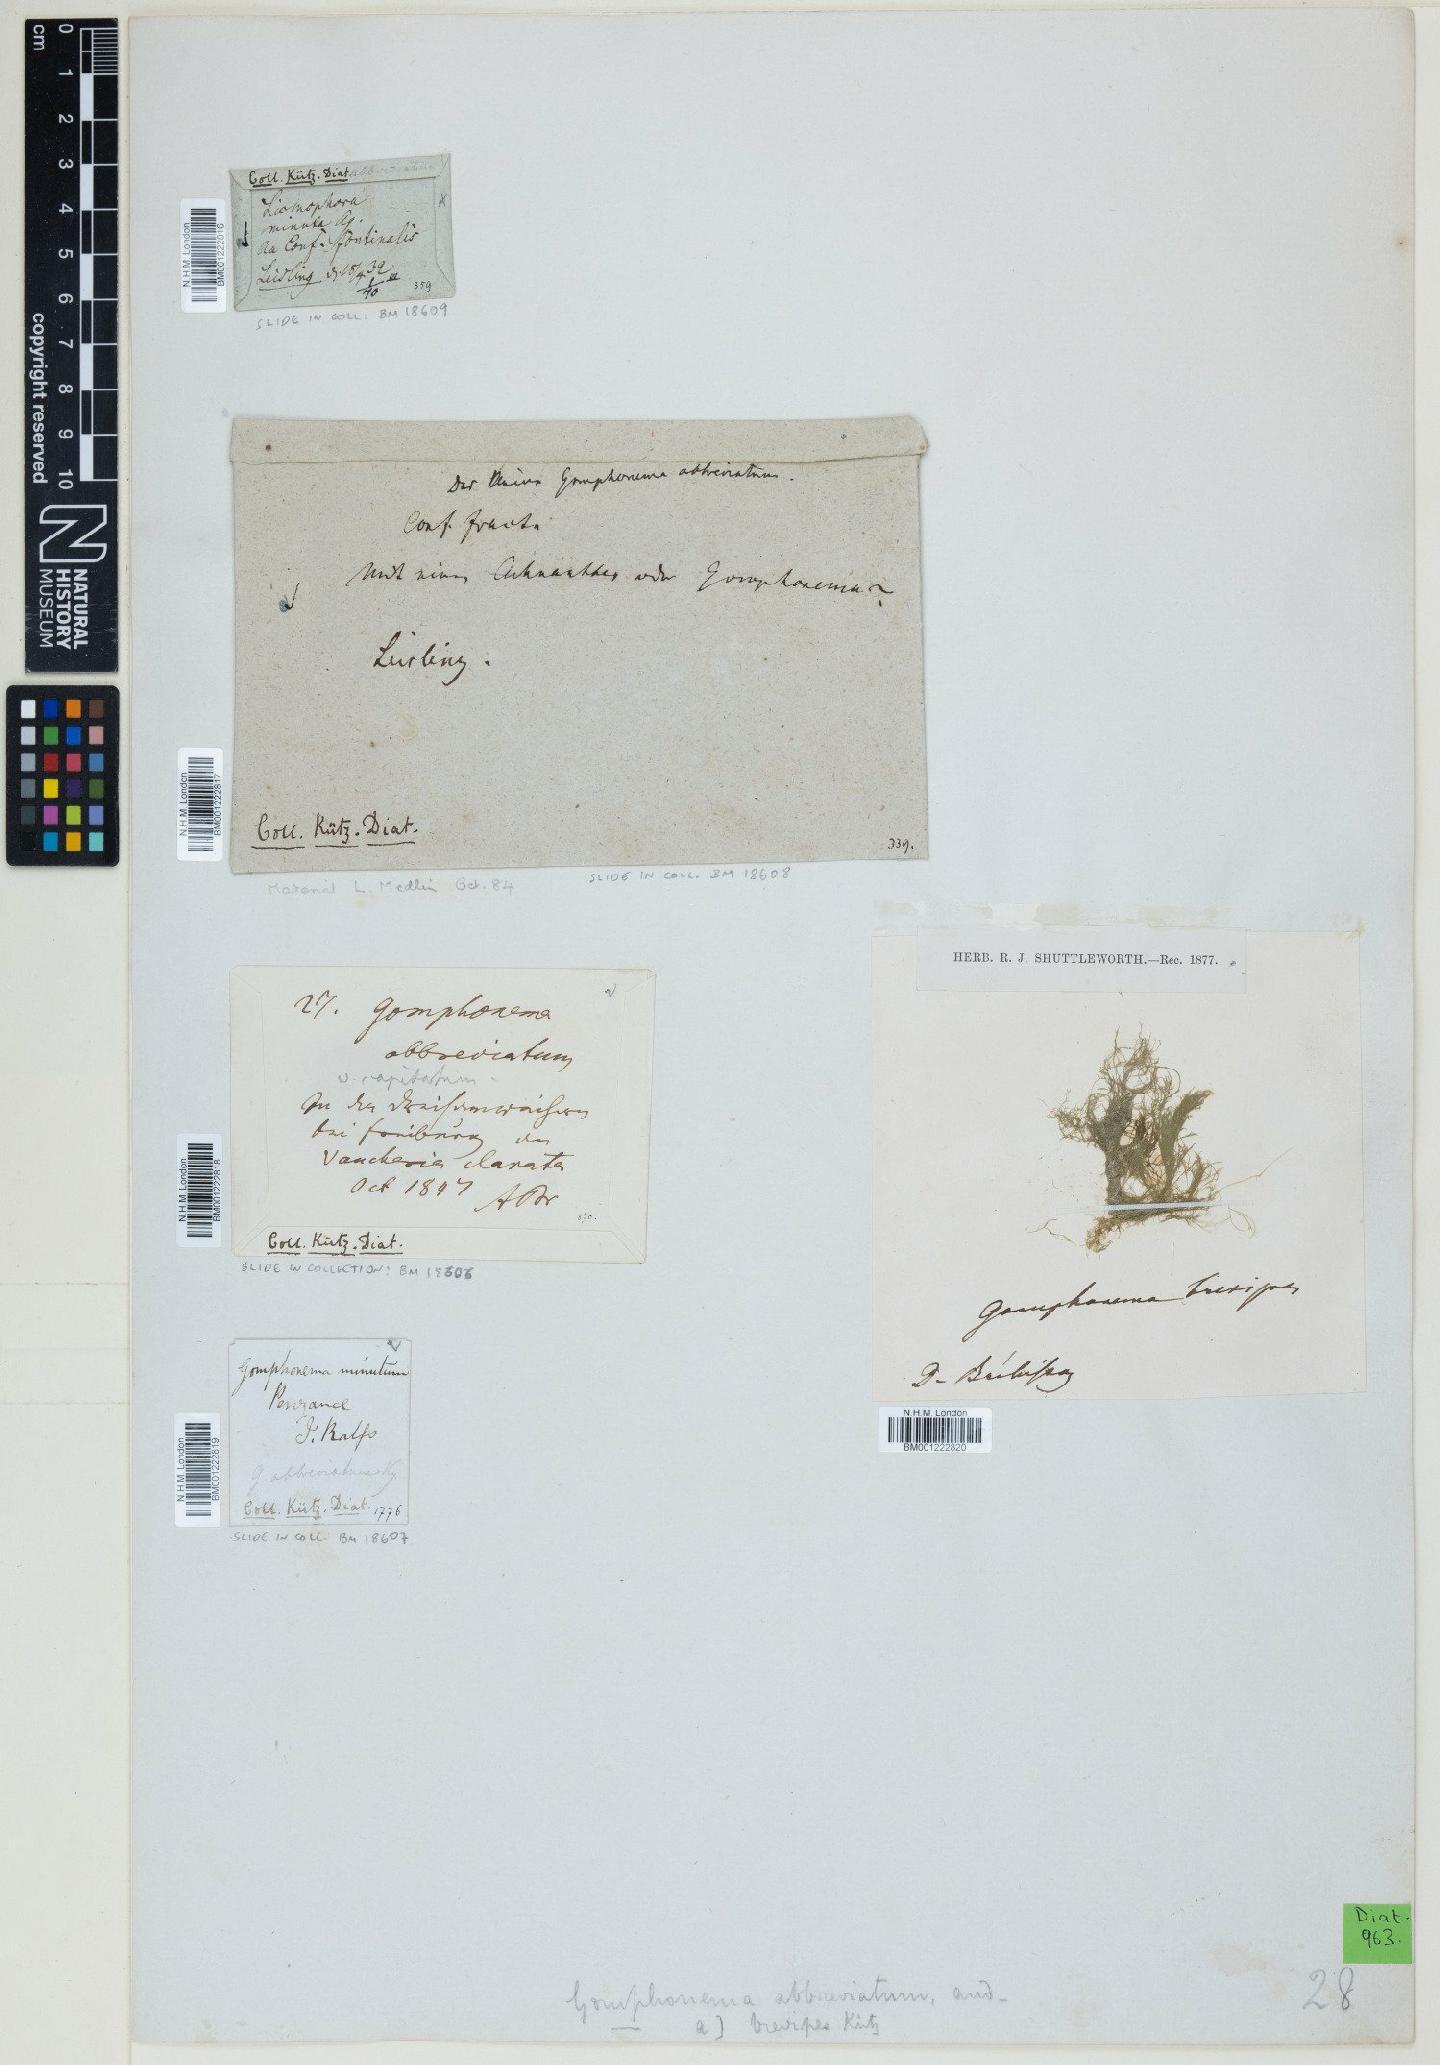 cm
0 1 2 3 4 5 6 7 8 9 10
copyright reserved
NATURAL
HISTORY
MUSEUM
N.H.M. London
Coll. Kütz. Diat. abbreviatum
Licmophora
minuta Ag.
Conf. fontinalis
Leisling
359
SLIDE IN COLL. BM 18609
Gomphonema abbreviatum.
Conf. fracta
Mit einer Achnanthes oder Gomphonema?
Leisling.
Coll. Kütz. Diat.
339.
N.H.M. London
BM001222817
Material L. Medlin Oct. 84
SLIDE IN COLL. BM 18608
27. Gomphonema
abbreviatum
v. capitatum
In der
bei Freiburg an
Vaucheria clavata
Oct 1847 ABr
870.
Coll. Kütz. Diat.
N.H.M. London
BM001222818
SLIDE IN COLLECTION: BM 18606
Gomphonema minutum
Penzance
J. Ralfs
G. abbreviatum Kg
Coll. Kütz. Diat. 1776
N.H.M. London
BM001222819
SLIDE IN COLL. BM 18607
HERB. R. J. SHUTTLEWORTH.—Rec. 1877.
Gomphonema brevipes
De Brébisson
N.H.M. London
BM001222820
Diat.
963.
28
Gomphonema abbreviatum, and
a] brevipes Kütz